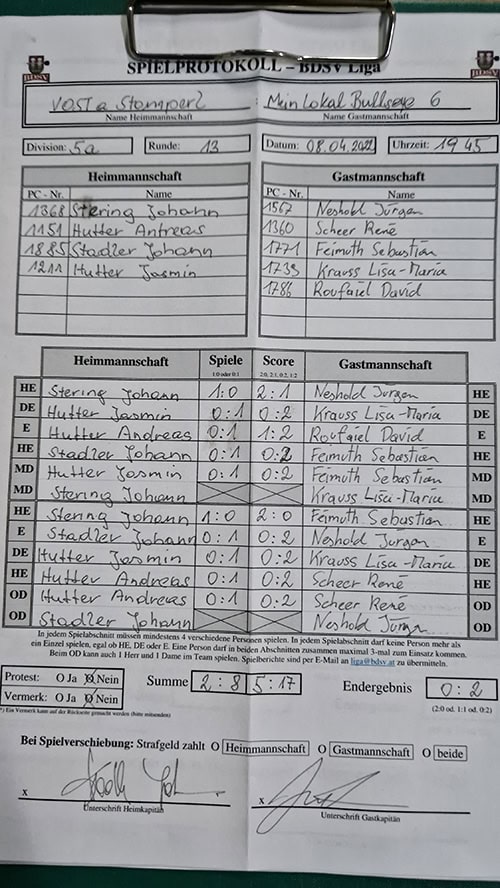 SPIELPROTOKOLL – BDSV Liga
BDSV BDSV
VOSTa Stamperl : Mein Lokal Bullseye 6
Name Heimmannschaft Name Gastmannschaft
Division: 5a Runde: 13 Datum: 08.04.2022 Uhrzeit: 19 45
Heimmannschaft Gastmannschaft
PC - Nr. Name PC - Nr. Name
1368 Stering Johann 1567 Neshold Jürgen
1151 Hutter Antreas 1360 Scheer René
1885 Stadler Johann 1771 Feimuth Sebastian
1211 Hutter Jasmin 1739 Krauss Lisa-Maria
1786 Roufaiel David
Heimmannschaft Spiele Score Gastmannschaft
1:0 oder 0:1 2:0, 2:1, 0:2, 1:2
HE Stering Johann 1:0 2:1 Neshold Jürgen HE
DE Hutter Jasmin 0:1 0:2 Krauss Lisa-Maria DE
E Hutter Andreas 0:1 1:2 Roufaiel David E
HE Stadler Johann 0:1 0:2 Feimuth Sebastian HE
MD Hutter Jasmin 0:1 0:2 Feimuth Sebastian MD
MD Stering Johann Krauss Lisa-Maria MD
HE Stering Johann 1:0 2:0 Feimuth Sebastian HE
E Stadler Johann 0:1 0:2 Neshold Jürgen E
DE Hutter Jasmin 0:1 0:2 Krauss Lisa-Maria DE
HE Hutter Andreas 0:1 0:2 Scheer René HE
OD Hutter Andreas 0:1 0:2 Scheer René OD
OD Stadler Johann Neshold Jürgen OD
In jedem Spielabschnitt müssen mindestens 4 verschiedene Personen spielen. In jedem Spielabschnitt darf keine Person mehr als
ein Einzel spielen, egal ob HE, DE oder E. Eine Person darf in beiden Abschnitten zusammen maximal 3-mal zum Einsatz kommen.
Beim OD kann auch 1 Herr und 1 Dame im Team spielen. Spielberichte sind per E-Mail an liga@bdsv.at zu übermitteln.
Protest: O Ja O Nein Summe 2:8 5:17 Endergebnis 0:2
Vermerk: O Ja O Nein (2:0 od. 1:1 od. 0:2)
*) Ein Vermerk kann auf der Rückseite gemacht werden (bitte mitsenden)
Bei Spielverschiebung: Strafgeld zahlt O Heimmannschaft O Gastmannschaft O beide
x x
Unterschrift Heimkapitän Unterschrift Gastkapitän